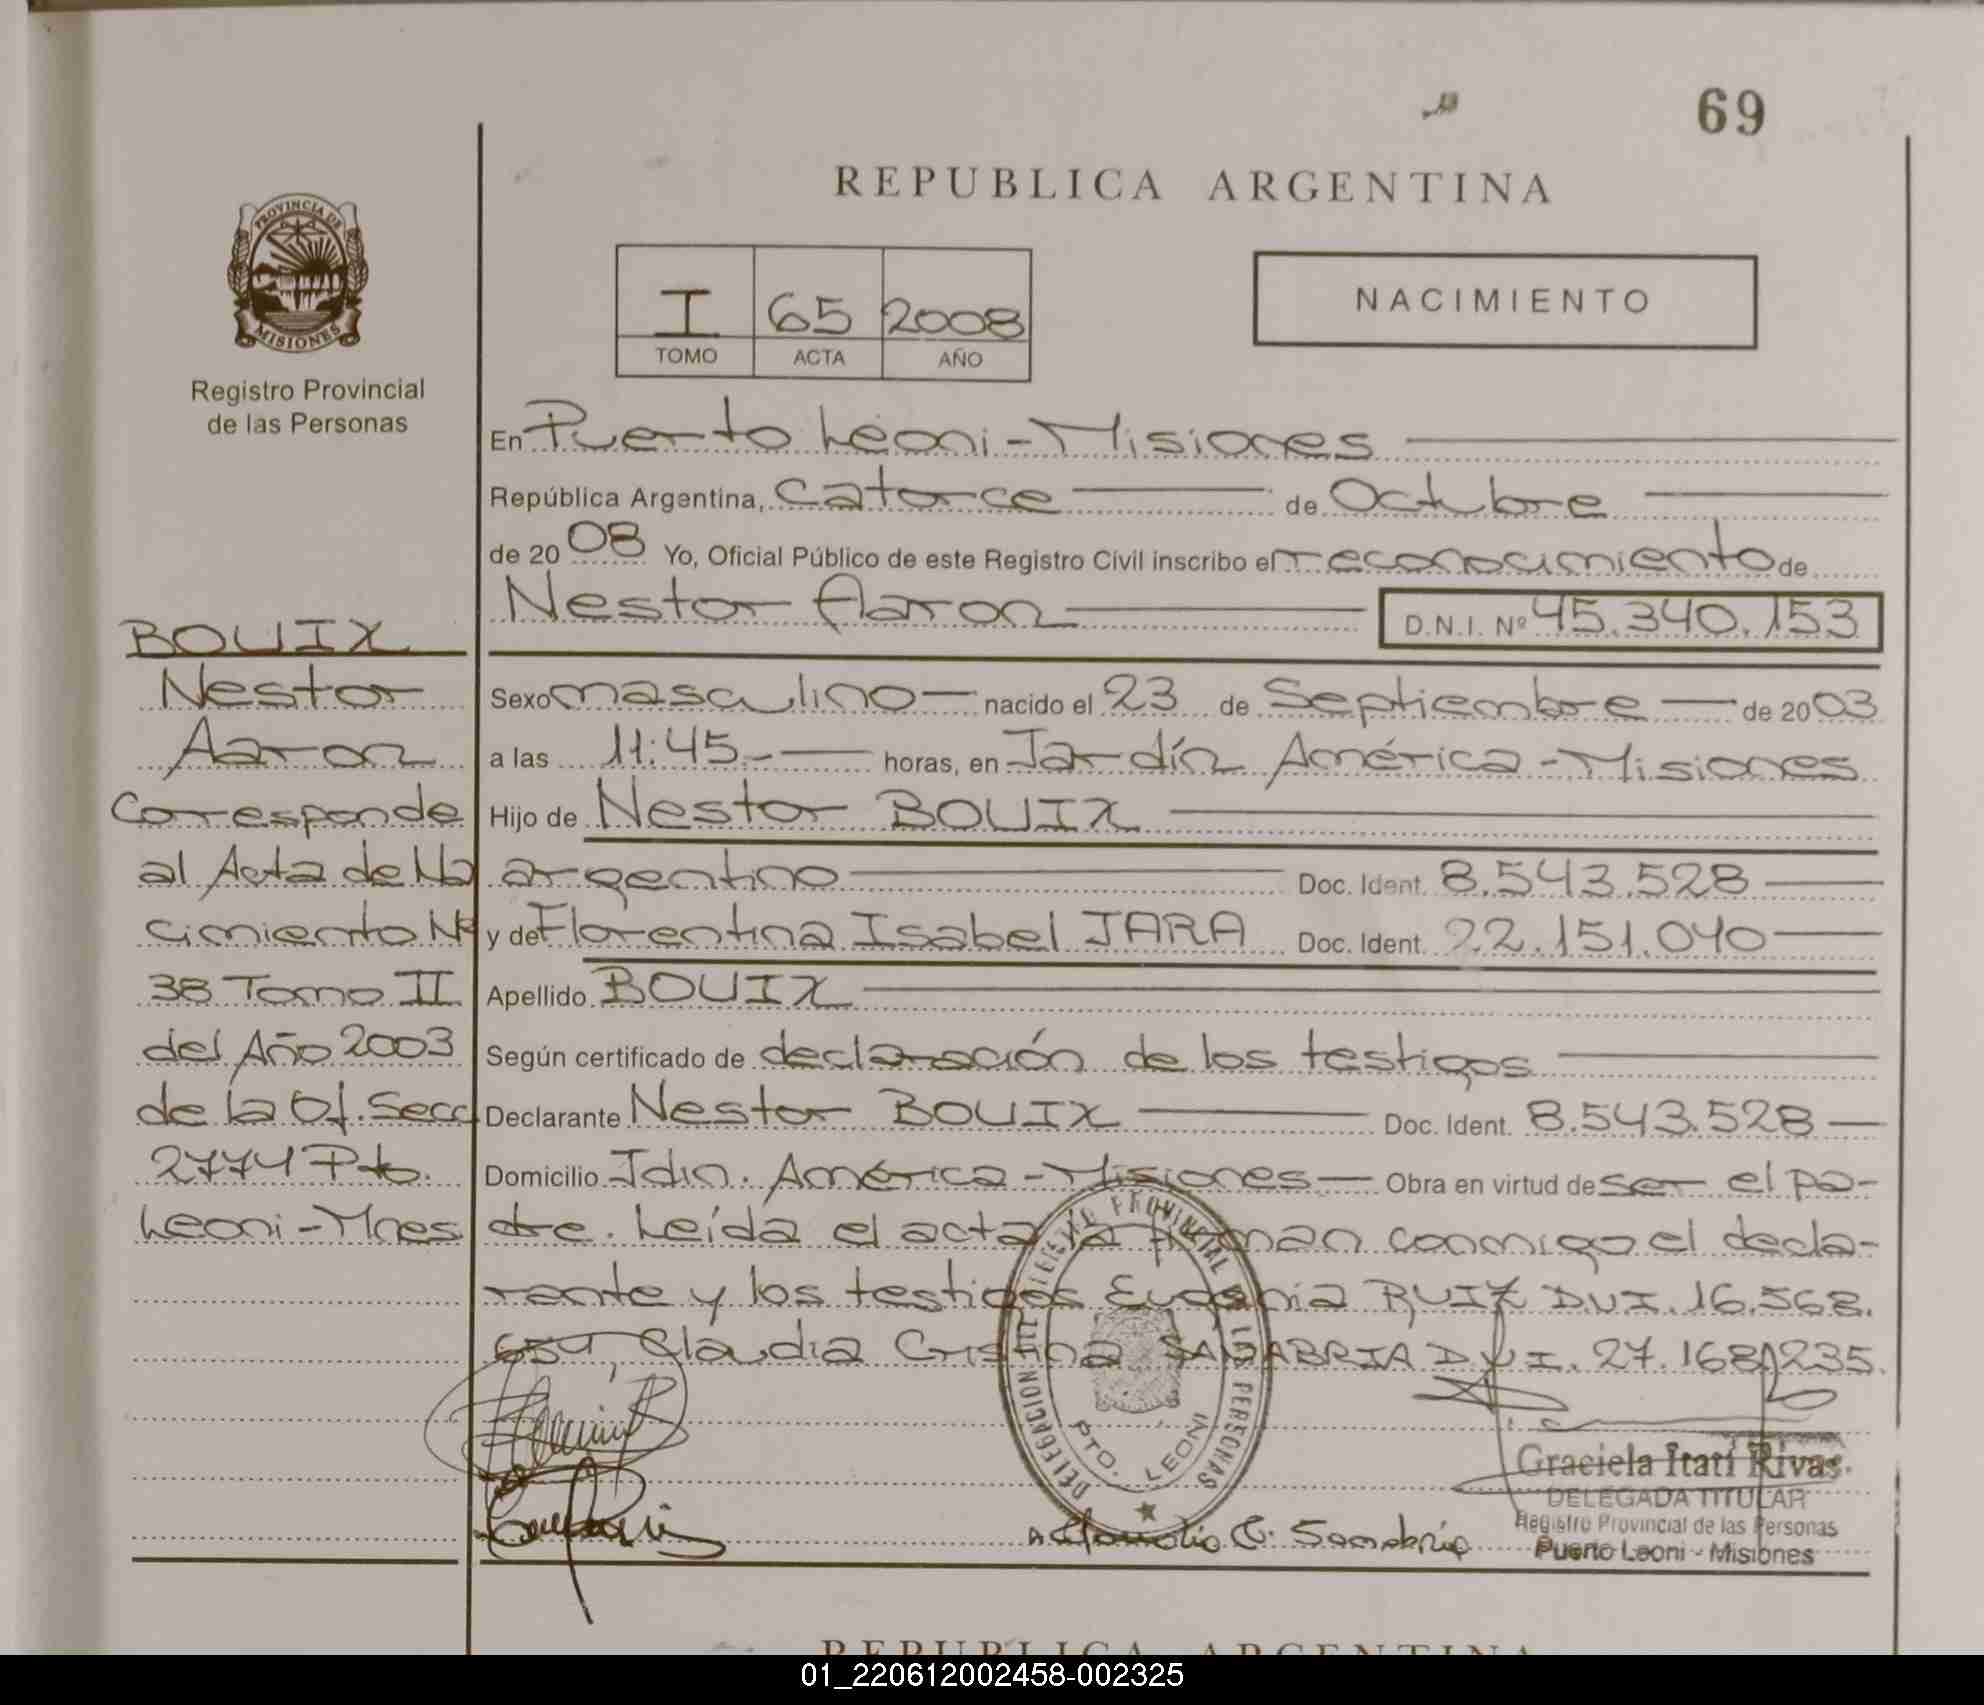 69
REPUBLICA ARGENTINA
PROVINCIA DE
MISIONES
Registro Provincial
de las Personas
I 65 2008
TOMO ACTA AÑO
NACIMIENTO
En Puerto Leoni - Misiones
República Argentina, Catorce de Octubre
de 20 08 Yo, Oficial Público de este Registro Civil inscribo el reconocimiento de
Nestor Aaron D.N.I. Nº 45.340.153
BOUIX
Nestor
Aaron
Corresponde
al Acta de Na
cimiento Nº
38 Tomo II
del Año 2003
de la Of. Secc
2774 Pto.
Leoni - Mnes
Sexo masculino nacido el 23 de Septiembre de 20 03
a las 11:45.- horas, en Jardín América - Misiones
Hijo de Nestor BOUIX
argentino Doc. Ident. 8.543.528
y de Florentina Isabel JARA Doc. Ident. 22.151.040
Apellido BOUIX
Según certificado de declaración de los testigos
Declarante Nestor BOUIX Doc. Ident. 8.543.528
Domicilio Jdin. América - Misiones Obra en virtud de ser el pa-
dre. Leída el acta la firman conmigo el decla-
rante y los testigos Eugenia RUIZ D.N.I. 16.568.
654, Claudia Cristina SANABRIA D.N.I. 27.168.235.
PROVINCIAL DE LAS PERSONAS
DELEGACION
PTO. LEONI
Claudia C. Sanabria
Graciela Itatí Rivas
DELEGADA TITULAR
Registro Provincial de las Personas
Puerto Leoni - Misiones
REPUBLICA ARGENTINA
01_220612002458-002325